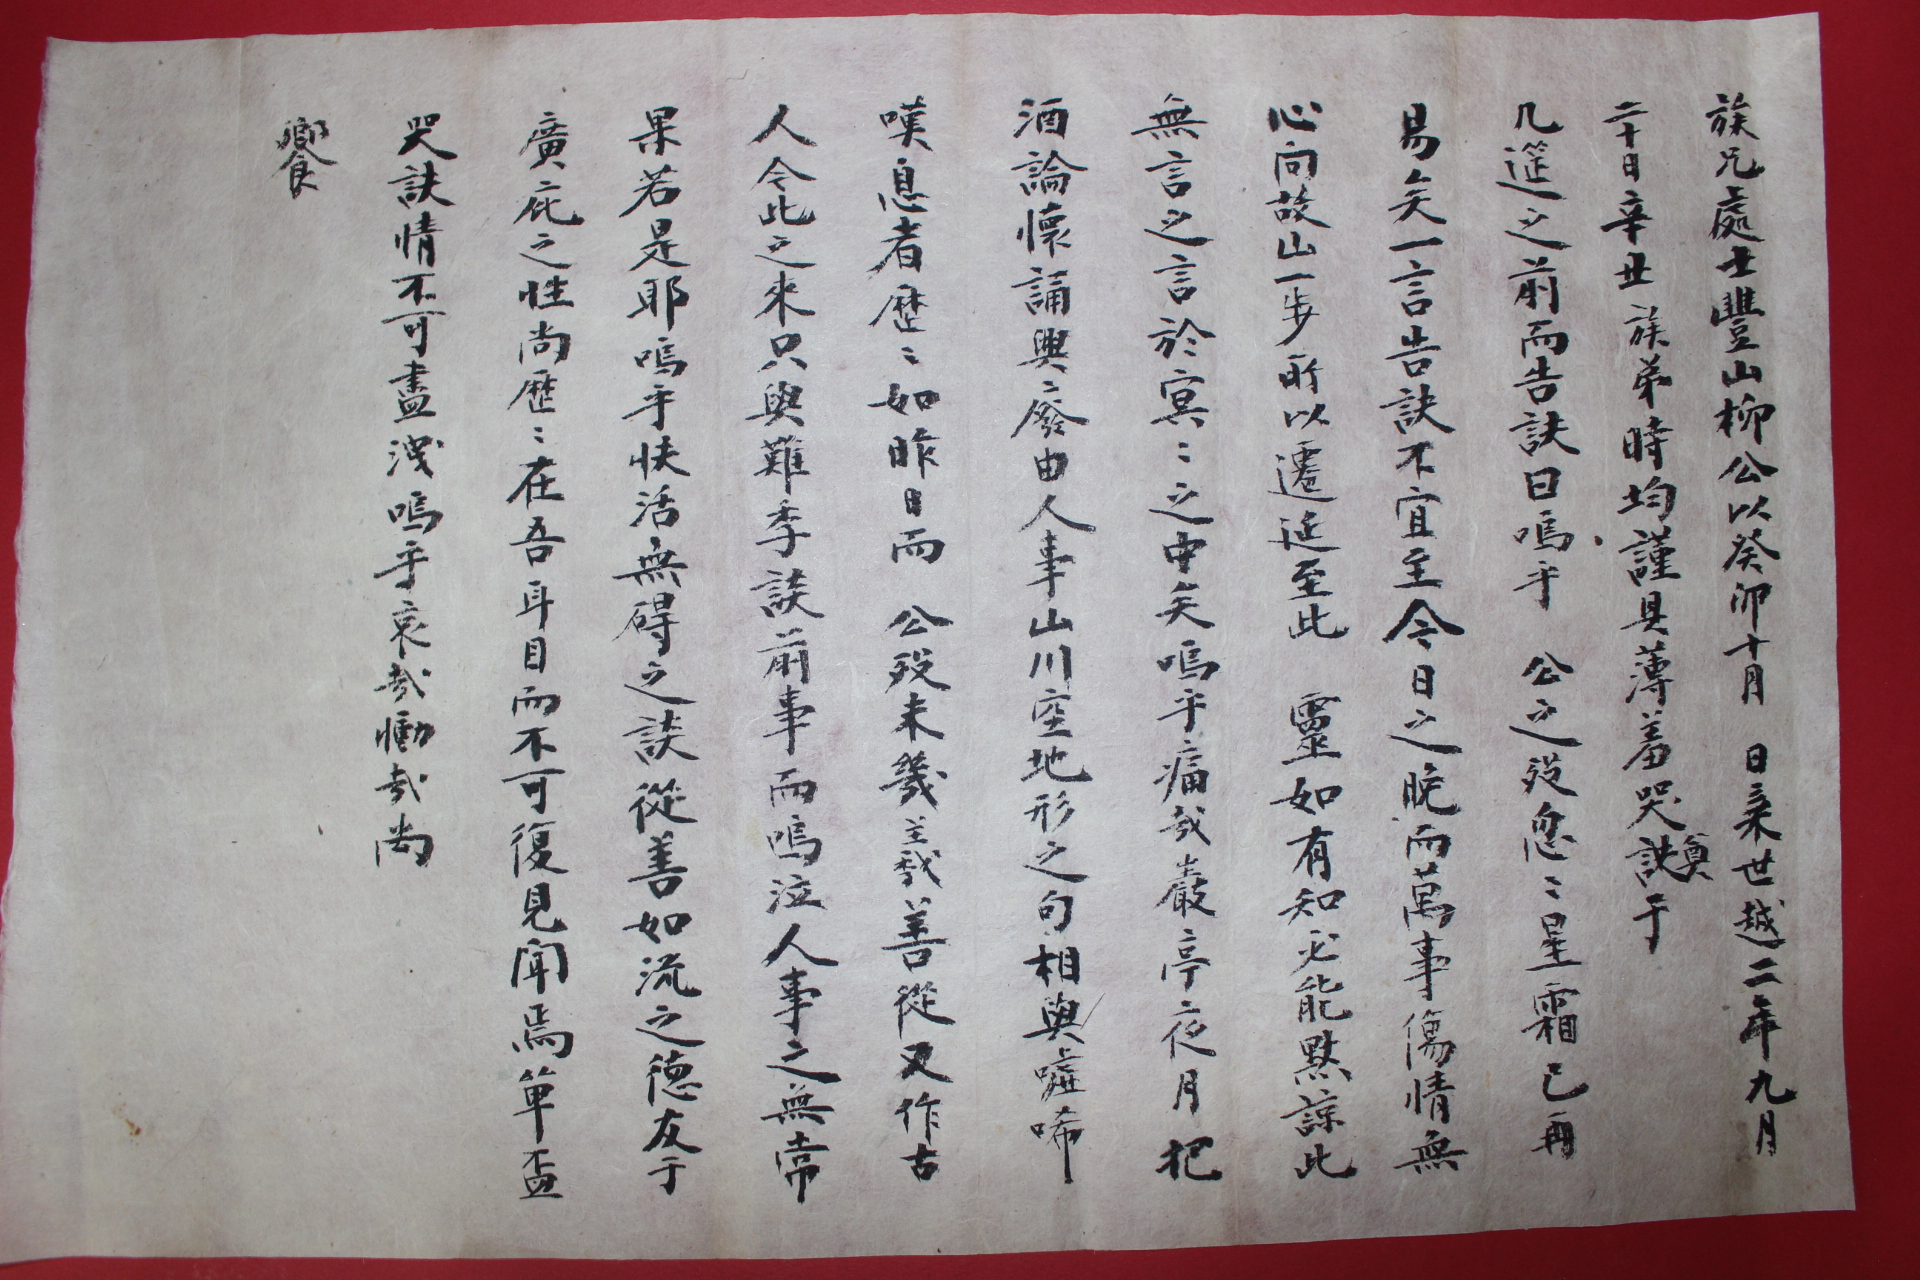 族兄處士豐山柳公以癸卯十月　日棄世越二年九月
二十日辛丑族弟時均謹具薄羞哭訣奠于
几筵之前而告訣曰嗚乎　公之歿忽〻星霜已再
易矣一言告訣不宜至今日之晩而萬事傷情無
心向故山一步所以遷延至此　靈如有知必能默諒此
無言之言於冥〻之中矣嗚乎痛哉巖亭夜月把
酒論懷誦興廢由人事山川空地形之句相與噓唏
嘆息者歷〻如昨日而　公歿未幾主哉善從又作古
人今此之來只與難季談前事而嗚泣人事之無常
果若是耶嗚乎快活無碍之談從善如流之德友于
廣庇之性尚歷〻在吾耳目而不可復見聞焉單盃
哭訣情不可盡洩嗚乎哀哉慟哉尚
饗